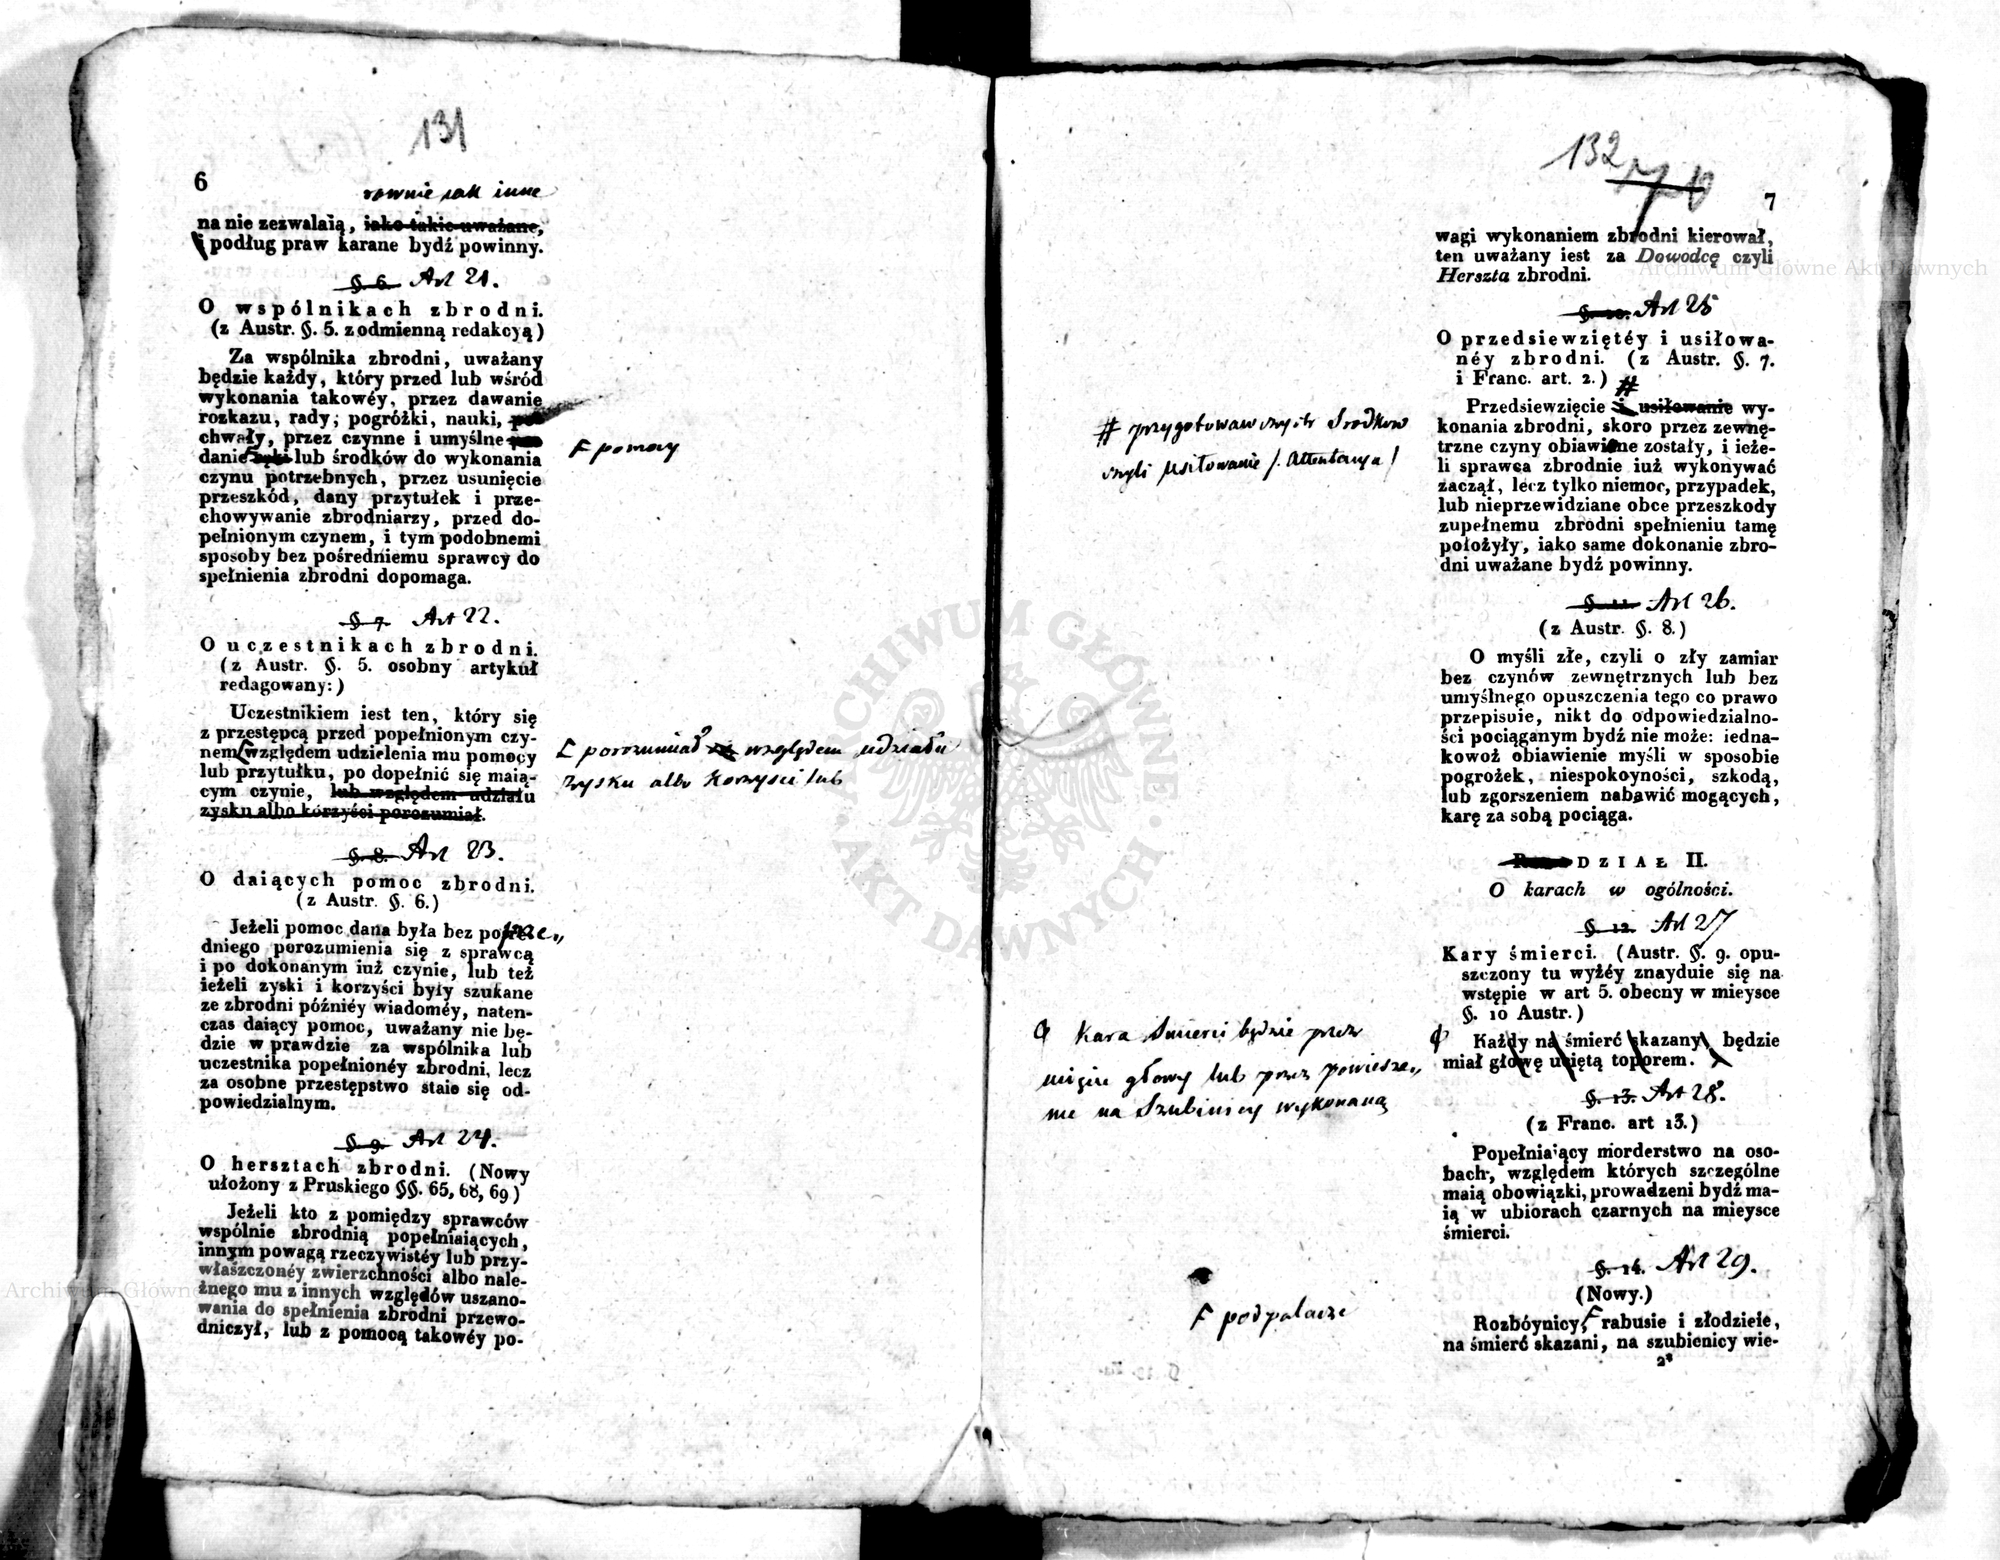 131
6
rownie iak inne
na nie zezwalaią, iako takie uważane,
i podług praw karane bydź powinny.
§. 6. Art 21.
O wspólnikach zbrodni.
(z Austr. §. 5. z odmienną redakcyą)
Za wspólnika zbrodni, uważany
będzie każdy, który przed lub wśród
wykonania takowéy, przez dawanie
rozkazu, rady, pogróżki, nauki, po-
chwały, przez czynne i umyślne
danie lub środków do wykonania
F pomocy
czynu potrzebnych, przez usunięcie
przeszkód, dany przytułek i prze-
chowywanie zbrodniarzy, przed do-
pełnionym czynem, i tym podobnemi
sposoby bez pośredniemu sprawcy do
spełnienia zbrodni dopomaga.
§ 7. Art 22.
O uczestnikach zbrodni.
(z Austr. §. 5. osobny artykuł
redagowany:)
Uczestnikiem iest ten, który się
z przestępcą przed popełnionym czy-
nem względem udzielenia mu pomocy
lub przytułku, po dopełnić się maią-
cym czynie, lub względem udziału
zysku albo korzyści porozumiał.
F porozumiał względem udziału
zysku albo korzyści lub
§. 8. Art 23.
O daiących pomoc zbrodni.
(z Austr. §. 6.)
Jeżeli pomoc dana była bez poprze„
dniego porozumienia się z sprawcą
i po dokonanym iuż czynie, lub też
ieżeli zyski i korzyści były szukane
ze zbrodni późniéy wiadoméy, naten-
czas daiący pomoc, uważany nie bę-
dzie w prawdzie za wspólnika lub
uczestnika popełnionéy zbrodni, lecz
za osobne przestępstwo staie się od-
powiedzialnym.
§. 9. Art 24.
O hersztach zbrodni. (Nowy
ułożony z Pruskiego §§. 65, 68, 69)
Jeżeli kto z pomiędzy sprawców
wspólnie zbrodnią popełniaiących,
innym powagą rzeczywistéy lub przy-
właszczonéy zwierzchności albo nale-
żnego mu z innych względów uszano-
wania do spełnienia zbrodni przewo-
dniczył, lub z pomocą takowéy po-
132
70
7
wagi wykonaniem zbrodni kierował,
ten uważany iest za Dowodcę czyli
Herszta zbrodni.
§. 10. Art 25
O przedsiewziętéy i usiłowa-
néy zbrodni. (z Austr. §. 7.
i Franc. art. 2.)
#
Przedsiewzięcie i usiłowanie wy-
konania zbrodni, skoro przez zewnę-
trzne czyny obiawione zostały, i ieże-
li sprawca zbrodnie iuż wykonywać
zaczął, lecz tylko niemoc, przypadek,
lub nieprzewidziane obce przeszkody
zupełnemu zbrodni spełnieniu tamę
położyły, iako same dokonanie zbro-
dni uważane bydź powinny.
# przygotowawczych srodkow
czyli usiłowanie /. Attentacya /
§. 11. Art 26.
(z Austr. §. 8.)
O myśli złe, czyli o zły zamiar
bez czynów zewnętrznych lub bez
umyślnego opuszczenia tego co prawo
przepisuie, nikt do odpowiedzialno-
ści pociąganym bydź nie może: iedna-
kowoż obiawienie myśli w sposobie
pogrożek, niespokoyności, szkodą,
lub zgorszeniem nabawić mogących,
karę za sobą pociąga.
DZIAŁ II.
O karach w ogólności.
§. 12. Art 27
Kary śmierci. (Austr. §. 9. opu-
szczony tu wyżéy znayduie się na
wstępie w art 5. obecny w mieysce
§. 10 Austr.)
Każdy na śmierć skazany, będzie
miał głowę uciętą toporem.
Kara Smierci będzie przez
ucięcie głowy lub przez powiesze„
nie na Szubienicy wykonaną
§. 13. Art 28.
(z Franc. art 13.)
Popełniaiący morderstwo na oso-
bach, względem których szczególne
maią obowiązki, prowadzeni bydź ma-
ią w ubiorach czarnych na mieysce
śmierci.
§. 14. Art 29.
(Nowy.)
Rozbóynicy, F rabusie i złodzieie,
na śmierć skazani, na szubienicy wie-
F podpalacze
2*
Archiwum Główne Akt Dawnych
Archiwum Główne
ARCHIWUM GŁÓWNE · AKT DAWNYCH ·